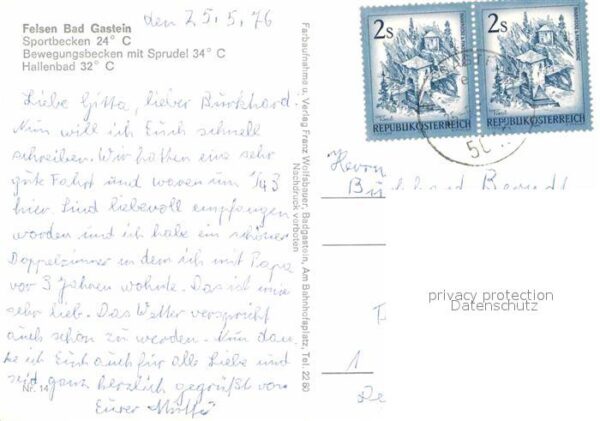 Felsen Bad Gastein
Sportbecken 24° C
Bewegungsbecken mit Sprudel 34° C
Hallenbad 32° C
den 25,5,76
Liebe Gitta, lieber Burkhard.
Nun will ich Euch schnell
schreiben. Wir hatten eine sehr
gute Fahrt und waren um 1/4 3
hier. Sind liebevoll empfangen
worden und ich habe ein schönes
Doppelzimmer in dem ich mit Papa
vor 3 Jahren wohnte. Das ist mir
sehr lieb. Das Wetter verspricht
auch schön zu werden. Nun dan-
ke ich Euch auch für alle Liebe und
seid ganz herzlich gegrüßt von
Eurer Mutti
Nr. 14
Farbaufnahme u. Verlag Franz Wolfsbauer, Badgastein, Am Bahnhofsplatz, Tel. 22 60
Nachdruck verboten
2s
REPUBLIK ÖSTERREICH
2s
REPUBLIK ÖSTERREICH
50
Herrn
privacy protection
Datenschutz
1